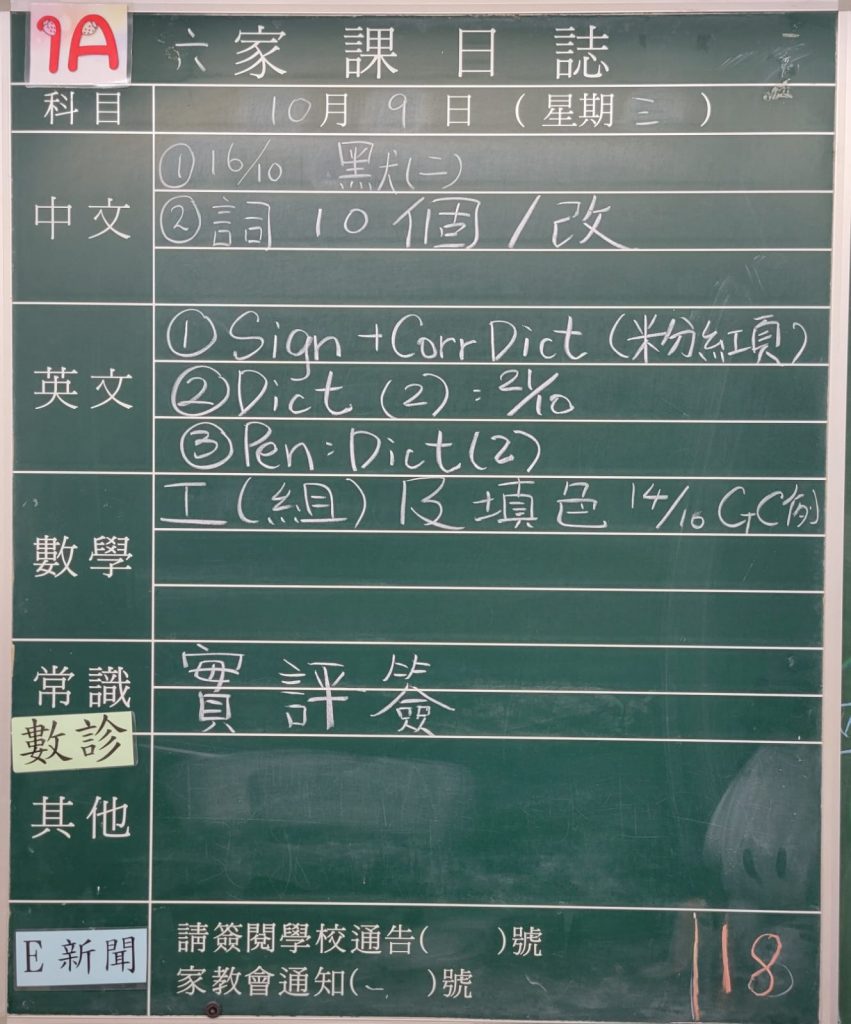 1A
六 家課日誌
科目 10月9日(星期三)
中文
① 16/10 默(二)
② 詞10個/改
英文
① Sign + Corr Dict (粉紅頁)
② Dict (2) : 21/10
③ Pen : Dict (2)
數學
工(組)及填色 14/10 GC例
常識
實評簽
數診
其他
E 新聞
請簽閱學校通告( )號
家教會通知( )號
118